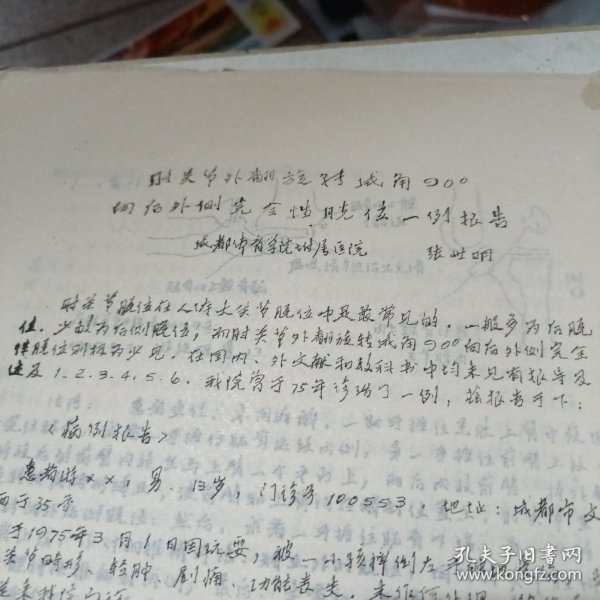 肘关节外翻旋转成角90°
向后外侧完全性脱位一例报告
成都体育学院附属医院 张世明
肘关节脱位在人体大关节脱位中是最常见的．一般多为后脱
位．少数为后侧脱位，而肘关节外翻旋转成角90°向后外侧完全
性脱位则极为少见．在国内、外文献和教科书中均未见有报导及
述及1.2.3.4.5.6．我院曾于75年诊治了一例，兹报告于下：
〈病例报告〉
患者游××，男、13岁，门诊号100553．地址：成都市文
35号
于1975年3月1日因玩耍，被一小孩摔倒在
关节畸形、较肿、剧痛、功能丧失．未作任何处理
孔夫子旧书网
www.kongfz.com